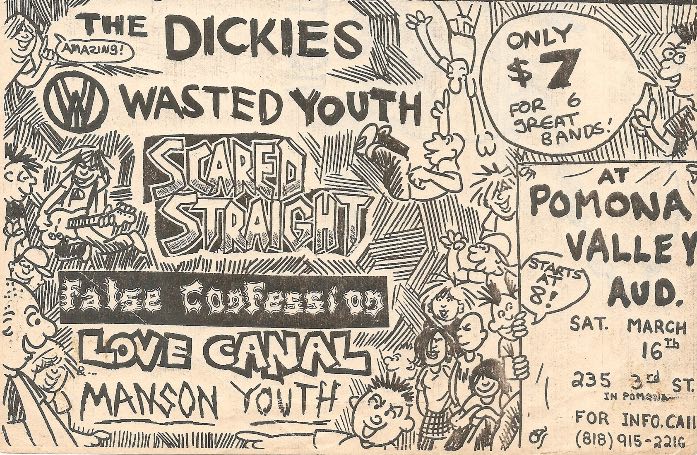 THE DICKIES
AMAZING!
W WASTED YOUTH
SCARED
STRAIGHT
False Confession
LOVE CANAL
MANSON YOUTH
ONLY
$7
FOR 6
GREAT
BANDS!
AT
POMONA
VALLEY
AUD.
STARTS
AT
8!
SAT. MARCH
16TH
235 3RD ST.
IN POMONA
FOR INFO. CALL
(818) 915-2216